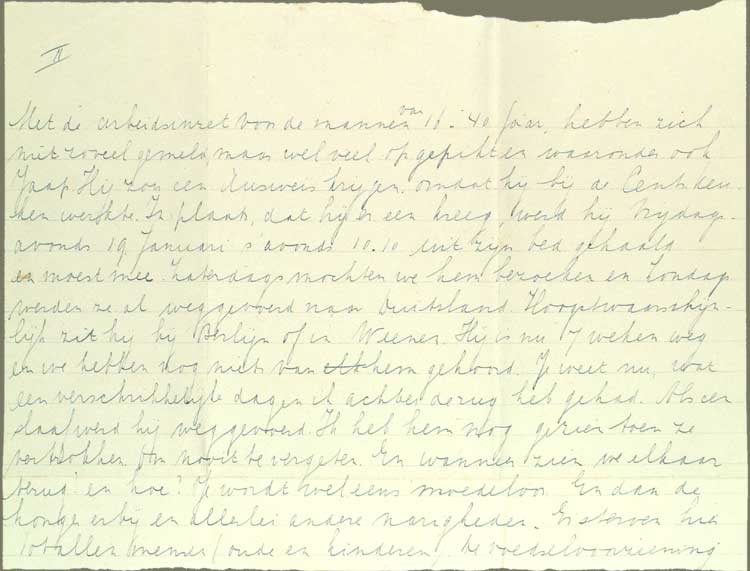 II
Met de arbeidsinzet van de mannen van 16 - 40 jaar, hebben zich
niet zoveel gemeld, maar wel veel opgepikt en waaronder ook
Jaap. Hij zou een Ausweis krijgen omdat hij bij de Centr. keu-
ken werkte. In plaats, dat hij er een kreeg, werd hij Vrijdags-
avonds 19 Januari s'avonds 10.10 uit zijn bed gehaald
en moest mee. Zaterdags mochten we hem bezoeken en Zondags
werden ze al weggevoerd naar Duitsland. Hoogstwaarschijn-
lijk zit hij bij Berlijn of in Weener. Hij is nu 7 weken weg
en we hebben nog niets van hem gehoord. Je weet nu, wat
een verschrikkelijke dagen ik achter de rug heb gehad. Als een
slaaf werd hij weggevoerd. Ik heb hem nog gezien toen ze
vertrokken. Om nooit te vergeten. En wanneer zien we elkaar
terug en hoe? Je wordt wel eens moedeloos. En dan de
honger erbij en allerlei andere narigheden. Er sterven hier
tientallen mensen (oude en kinderen). De voedselvoorziening